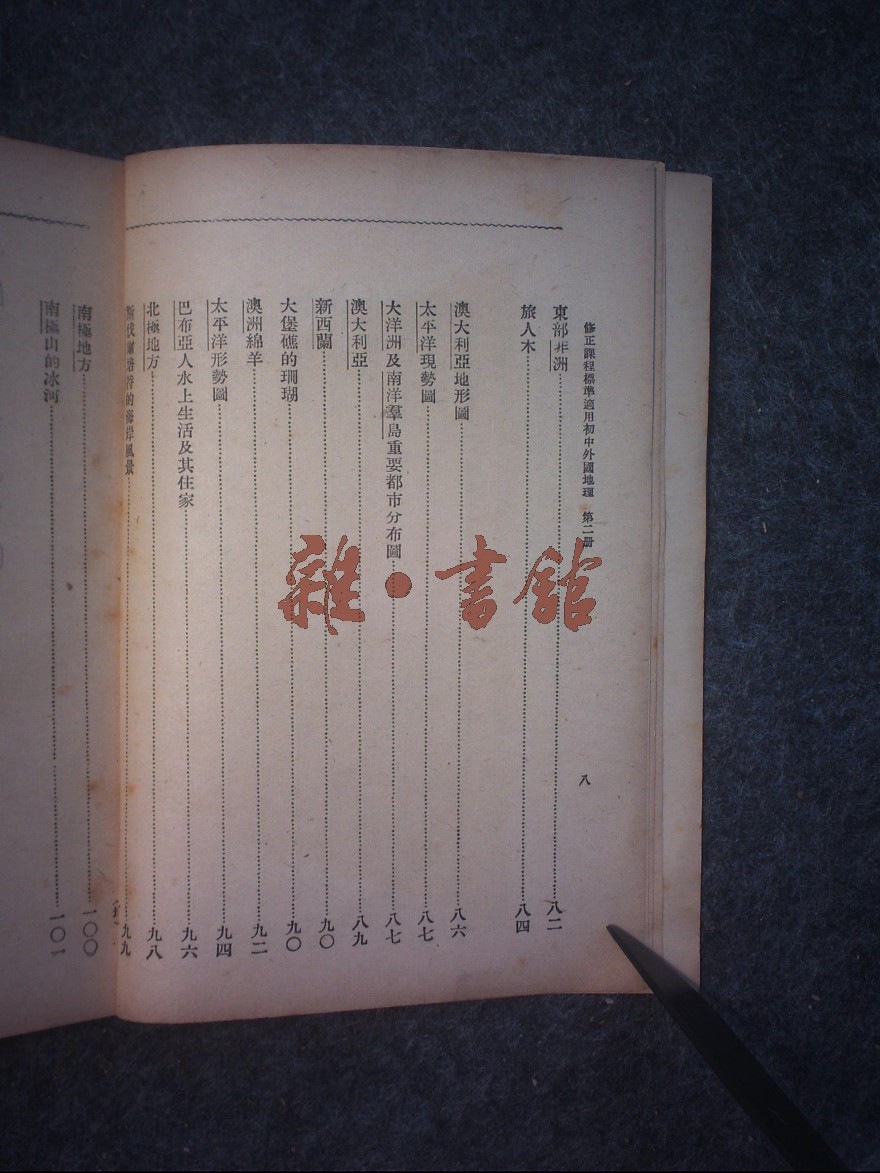 修正課程標準適用初中外國地理　第二册
八
東部非洲……八二
旅人木……八四
澳大利亞地形圖……八六
太平洋現勢圖……八七
大洋洲及南洋羣島重要都市分布圖……八七
澳大利亞……八九
新西蘭……九〇
大堡礁的珊瑚……九〇
澳洲綿羊……九二
太平洋形勢圖……九四
巴布亞人水上生活及其住家……九六
北極地方……九八
的海岸風景……九九
南極地方……一〇〇
南極山的冰河……一〇一
雜·書館